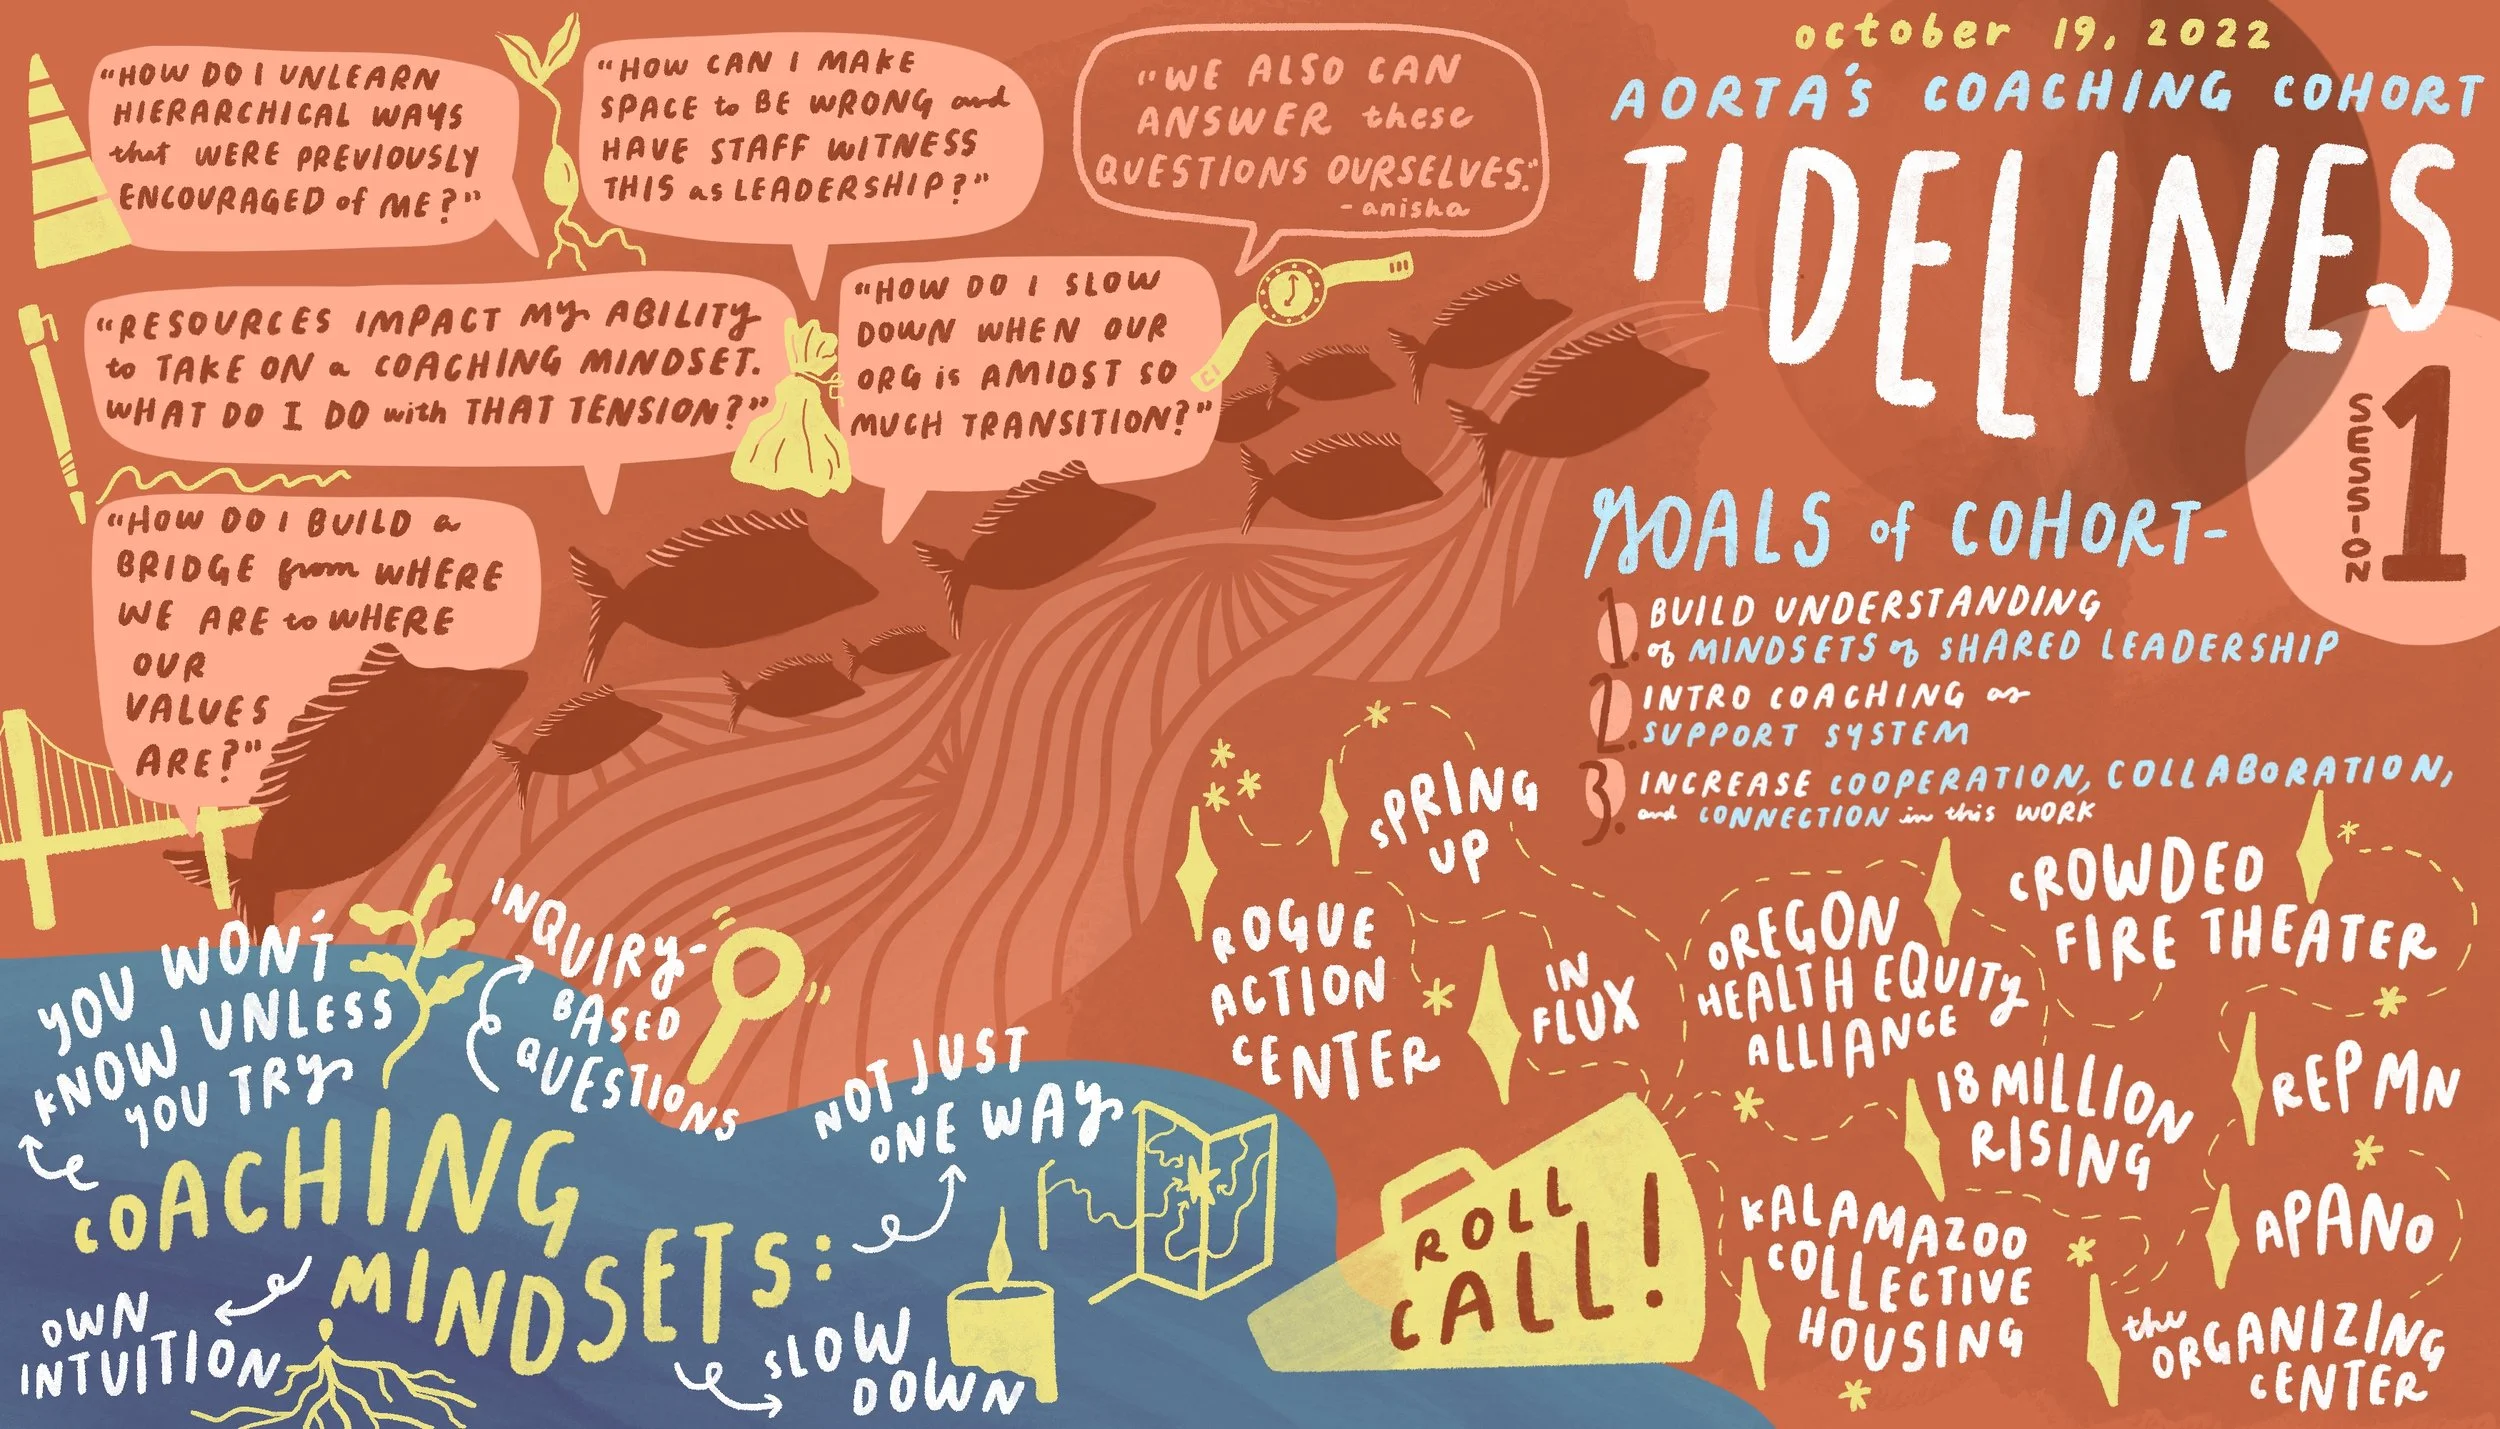 october 19, 2022
AORTA'S COACHING COHORT
TIDELINES
SESSION 1
"HOW DO I UNLEARN
HIERARCHICAL WAYS
that WERE PREVIOUSLY
ENCOURAGED of ME?"
"HOW CAN I MAKE
SPACE to BE WRONG and
HAVE STAFF WITNESS
THIS as LEADERSHIP?"
"WE ALSO CAN
ANSWER these
QUESTIONS OURSELVES."
- anisha
"RESOURCES IMPACT MY ABILITY
to TAKE ON a COACHING MINDSET.
WHAT DO I DO with THAT TENSION?"
"HOW DO I SLOW
DOWN WHEN OUR
ORG is AMIDST SO
MUCH TRANSITION?"
"HOW DO I BUILD a
BRIDGE from WHERE
WE ARE to WHERE
OUR
VALUES
ARE?"
GOALS of COHORT-
1. BUILD UNDERSTANDING
of MINDSETS of SHARED LEADERSHIP
2. INTRO COACHING as
SUPPORT SYSTEM
3. INCREASE COOPERATION, COLLABORATION,
and CONNECTION in this WORK
COACHING
MINDSETS:
YOU WON'T
KNOW UNLESS
YOU TRY
INQUIRY-
BASED
QUESTIONS
NOT JUST
ONE WAY
OWN
INTUITION
SLOW
DOWN
ROLL
CALL!
SPRING
UP
ROGUE
ACTION
CENTER
IN
FLUX
OREGON
HEALTH EQUITY
ALLIANCE
CROWDED
FIRE THEATER
18 MILLION
RISING
REP MN
KALAMAZOO
COLLECTIVE
HOUSING
APANO
the
ORGANIZING
CENTER